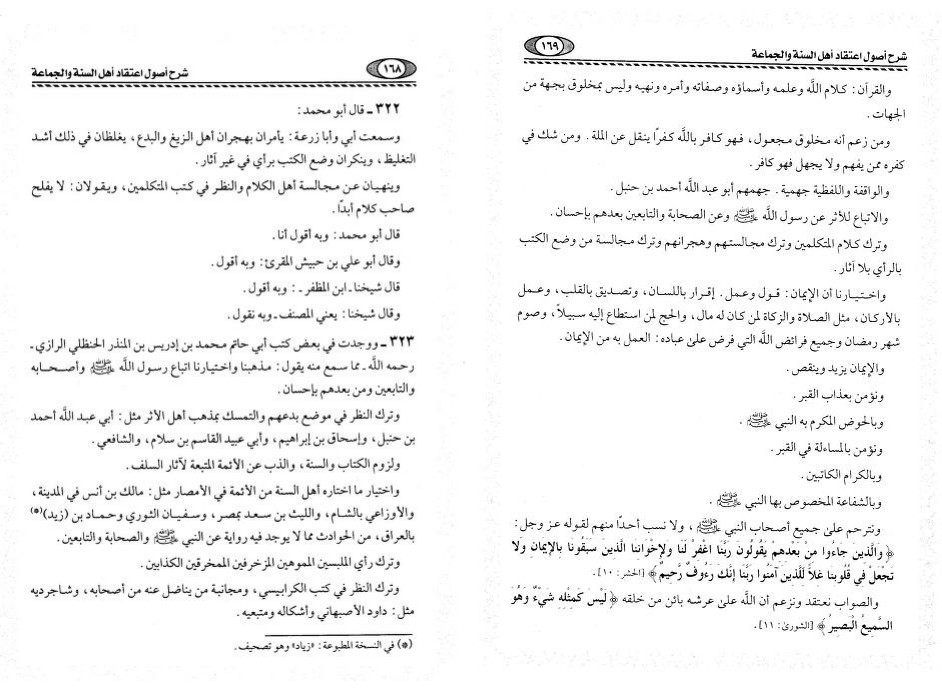 ١٦٨
شرح أصول اعتقاد أهل السنة والجماعة
٣٢٢ ـ قال أبو محمد:
وسمعت أبي وأبا زرعة: يأمران بهجران أهل الزيغ والبدع، يغلظان في ذلك أشد
التغليظ، وينكران وضع الكتب برأي في غير آثار.
وينهيان عن مجالسة أهل الكلام والنظر في كتب المتكلمين، ويقولان: لا يفلح
صاحب كلام أبدًا.
قال أبو محمد: وبه أقول أنا.
وقال أبو علي بن حبيش المقرئ: وبه أقول.
قال شيخنا ـ ابن المظفر ـ: وبه أقول.
وقال شيخنا: يعني المصنف ـ وبه نقول.
٣٢٣ ـ ووجدت في بعض كتب أبي حاتم محمد بن إدريس بن المنذر الحنظلي الرازي ـ
رحمه الله ـ مما سمع منه يقول: مذهبنا واختيارنا اتباع رسول الله ﷺ وأصحابه
والتابعين ومن بعدهم بإحسان.
وترك النظر في موضع بدعهم والتمسك بمذهب أهل الأثر مثل: أبي عبد الله أحمد
بن حنبل، وإسحاق بن إبراهيم، وأبي عبيد القاسم بن سلام، والشافعي.
ولزوم الكتاب والسنة، والذب عن الأئمة المتبعة لآثار السلف.
واختيار ما اختاره أهل السنة من الأئمة في الأمصار مثل: مالك بن أنس في المدينة،
والأوزاعي بالشام، والليث بن سعد بمصر، وسفيان الثوري وحماد بن (زيد)(*)
بالعراق، من الحوادث مما لا يوجد فيه رواية عن النبي ﷺ والصحابة والتابعين.
وترك رأي الملبسين المموهين المزخرفين الممخرقين الكذابين.
وترك النظر في كتب الكرابيسي، ومجانبة من يناضل عنه من أصحابه، وشاجرديه
مثل: داود الأصبهاني وأشكاله ومتبعيه.
(*) في النسخة المطبوعة: «زياد» وهو تصحيف.
١٦٩
شرح أصول اعتقاد أهل السنة والجماعة
والقرآن: كلام الله وعلمه وأسماؤه وصفاته وأمره ونهيه وليس بمخلوق بجهة من
الجهات.
ومن زعم أنه مخلوق مجعول، فهو كافر بالله كفرًا ينقل عن الملة. ومن شك في
كفره ممن يفهم ولا يجهل فهو كافر.
والواقفة واللفظية جهمية. جهمهم أبو عبد الله أحمد بن حنبل.
والاتباع للأثر عن رسول الله ﷺ وعن الصحابة والتابعين بعدهم بإحسان.
وترك كلام المتكلمين وترك مجالستهم وهجرانهم وترك مجالسة من وضع الكتب
بالرأي بلا آثار.
واختيارنا أن الإيمان: قول وعمل. إقرار باللسان، وتصديق بالقلب، وعمل
بالأركان، مثل الصلاة والزكاة لمن كان له مال، والحج لمن استطاع إليه سبيلاً، وصوم
شهر رمضان وجميع فرائض الله التي فرض على عباده: العمل به من الإيمان.
والإيمان يزيد وينقص.
ونؤمن بعذاب القبر.
وبالحوض المكرم به النبي ﷺ.
ونؤمن بالمساءلة في القبر.
وبالكرام الكاتبين.
وبالشفاعة المخصوص بها النبي ﷺ.
ونترحم على جميع أصحاب النبي ﷺ، ولا نسب أحدًا منهم لقوله عز وجل:
﴿ وَالَّذِينَ جَاءُوا مِن بَعْدِهِمْ يَقُولُونَ رَبَّنَا اغْفِرْ لَنَا وَلِإِخْوَانِنَا الَّذِينَ سَبَقُونَا بِالْإِيمَانِ وَلَا
تَجْعَلْ فِي قُلُوبِنَا غِلاًّ لِّلَّذِينَ آمَنُوا رَبَّنَا إِنَّكَ رَءُوفٌ رَّحِيمٌ ﴾ [الحشر: ١٠].
والصواب نعتقد ونزعم أن الله على عرشه بائن من خلقه ﴿ لَيْسَ كَمِثْلِهِ شَيْءٌ وَهُوَ
السَّمِيعُ الْبَصِيرُ ﴾ [الشورى: ١١].